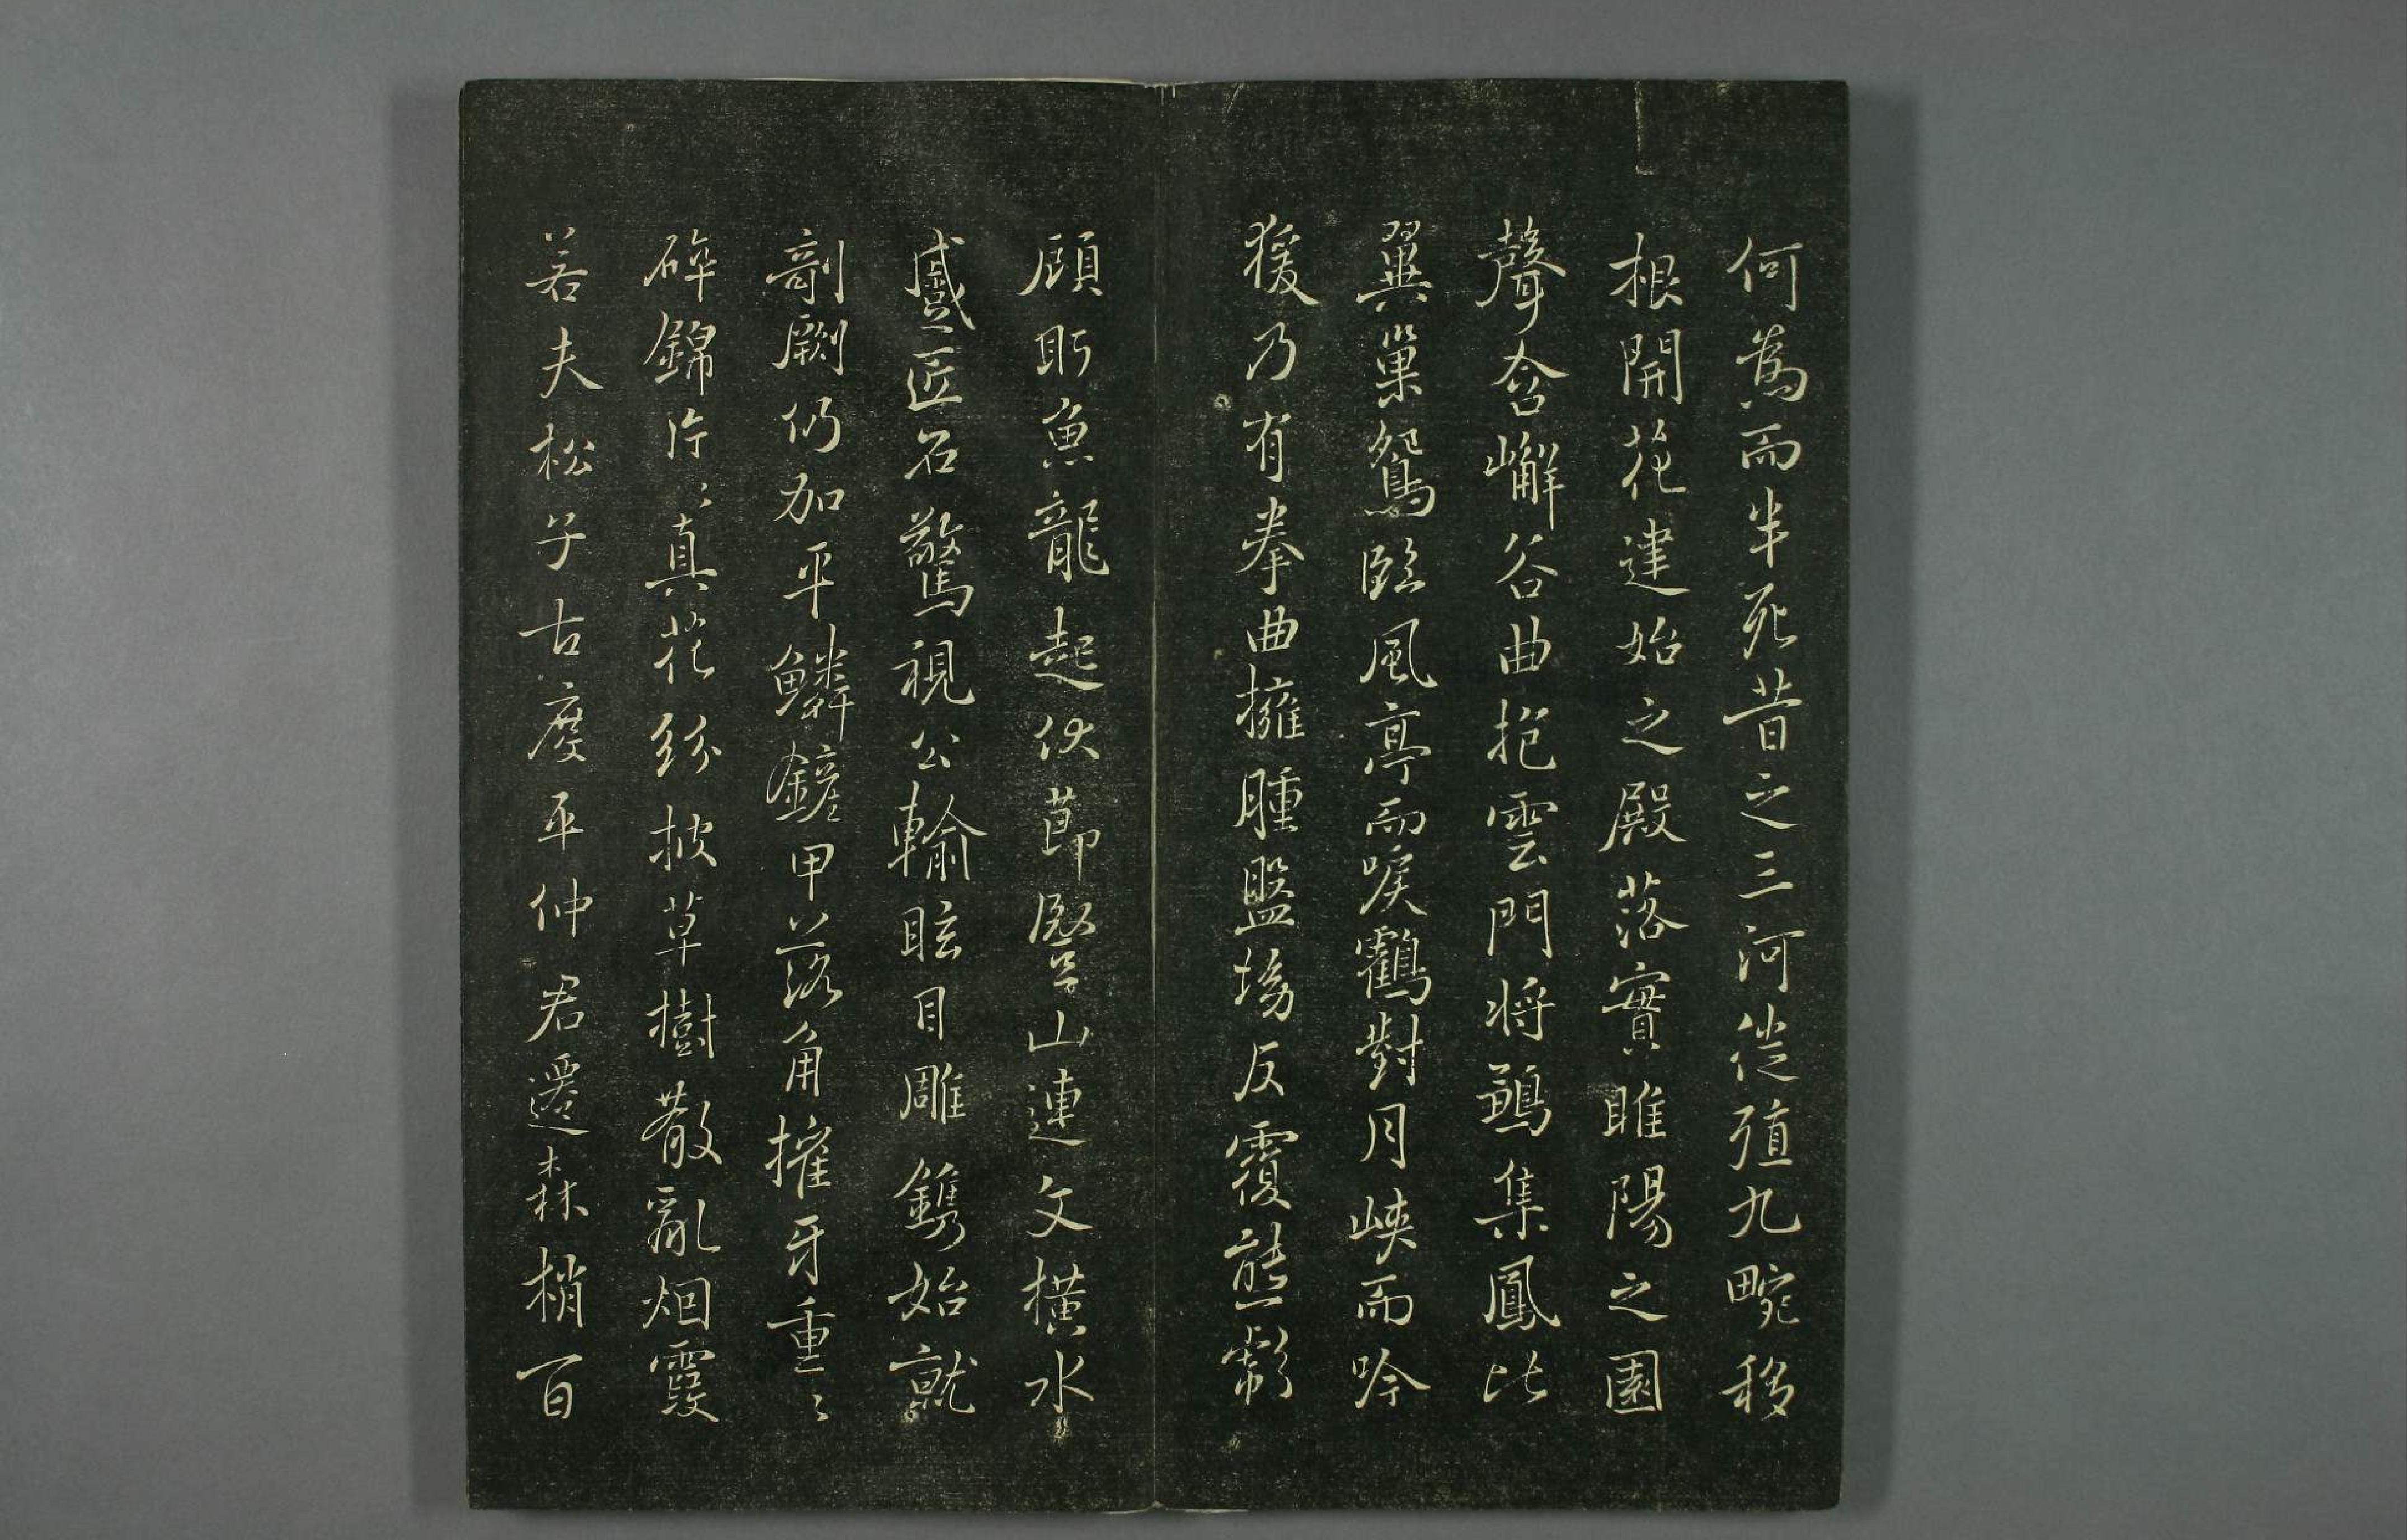 何為而半死昔之三河徙殖九畹移
根開花建始之殿落實睢陽之園
聲含嶰谷曲抱雲門將鶵集鳳比
翼巢鴛臨風亭而唳鶴對月峽而吟
猨乃有拳曲擁腫盤坳反覆熊彪
顧盻魚龍起伏節豎山連文橫水
蹙匠石驚視公輸眩目雕鐫始就
剞劂仍加平鱗鏟甲落角摧牙重〻
碎錦片〻真花紛披草樹散亂烟霞
若夫松子古度平仲君遷森梢百